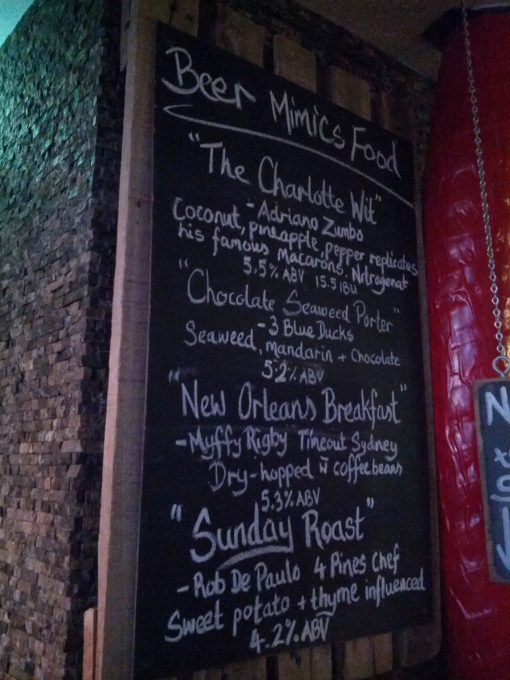 Beer Mimics Food
"The Charlotte Wit"
- Adriano Zumbo
Coconut, pineapple, pepper replicates
his famous Macarons. Nitrogenat
5.5% ABV 15.5 IBU
"Chocolate Seaweed Porter"
- 3 Blue Ducks
Seaweed, mandarin + Chocolate
5.2% ABV
"New Orleans Breakfast"
- Myffy Rigby Timeout Sydney
Dry-hopped w coffee beans
5.3% ABV
"Sunday Roast"
- Rob De Paulo 4 Pines Chef
Sweet potato + thyme influenced
4.2% ABV
N